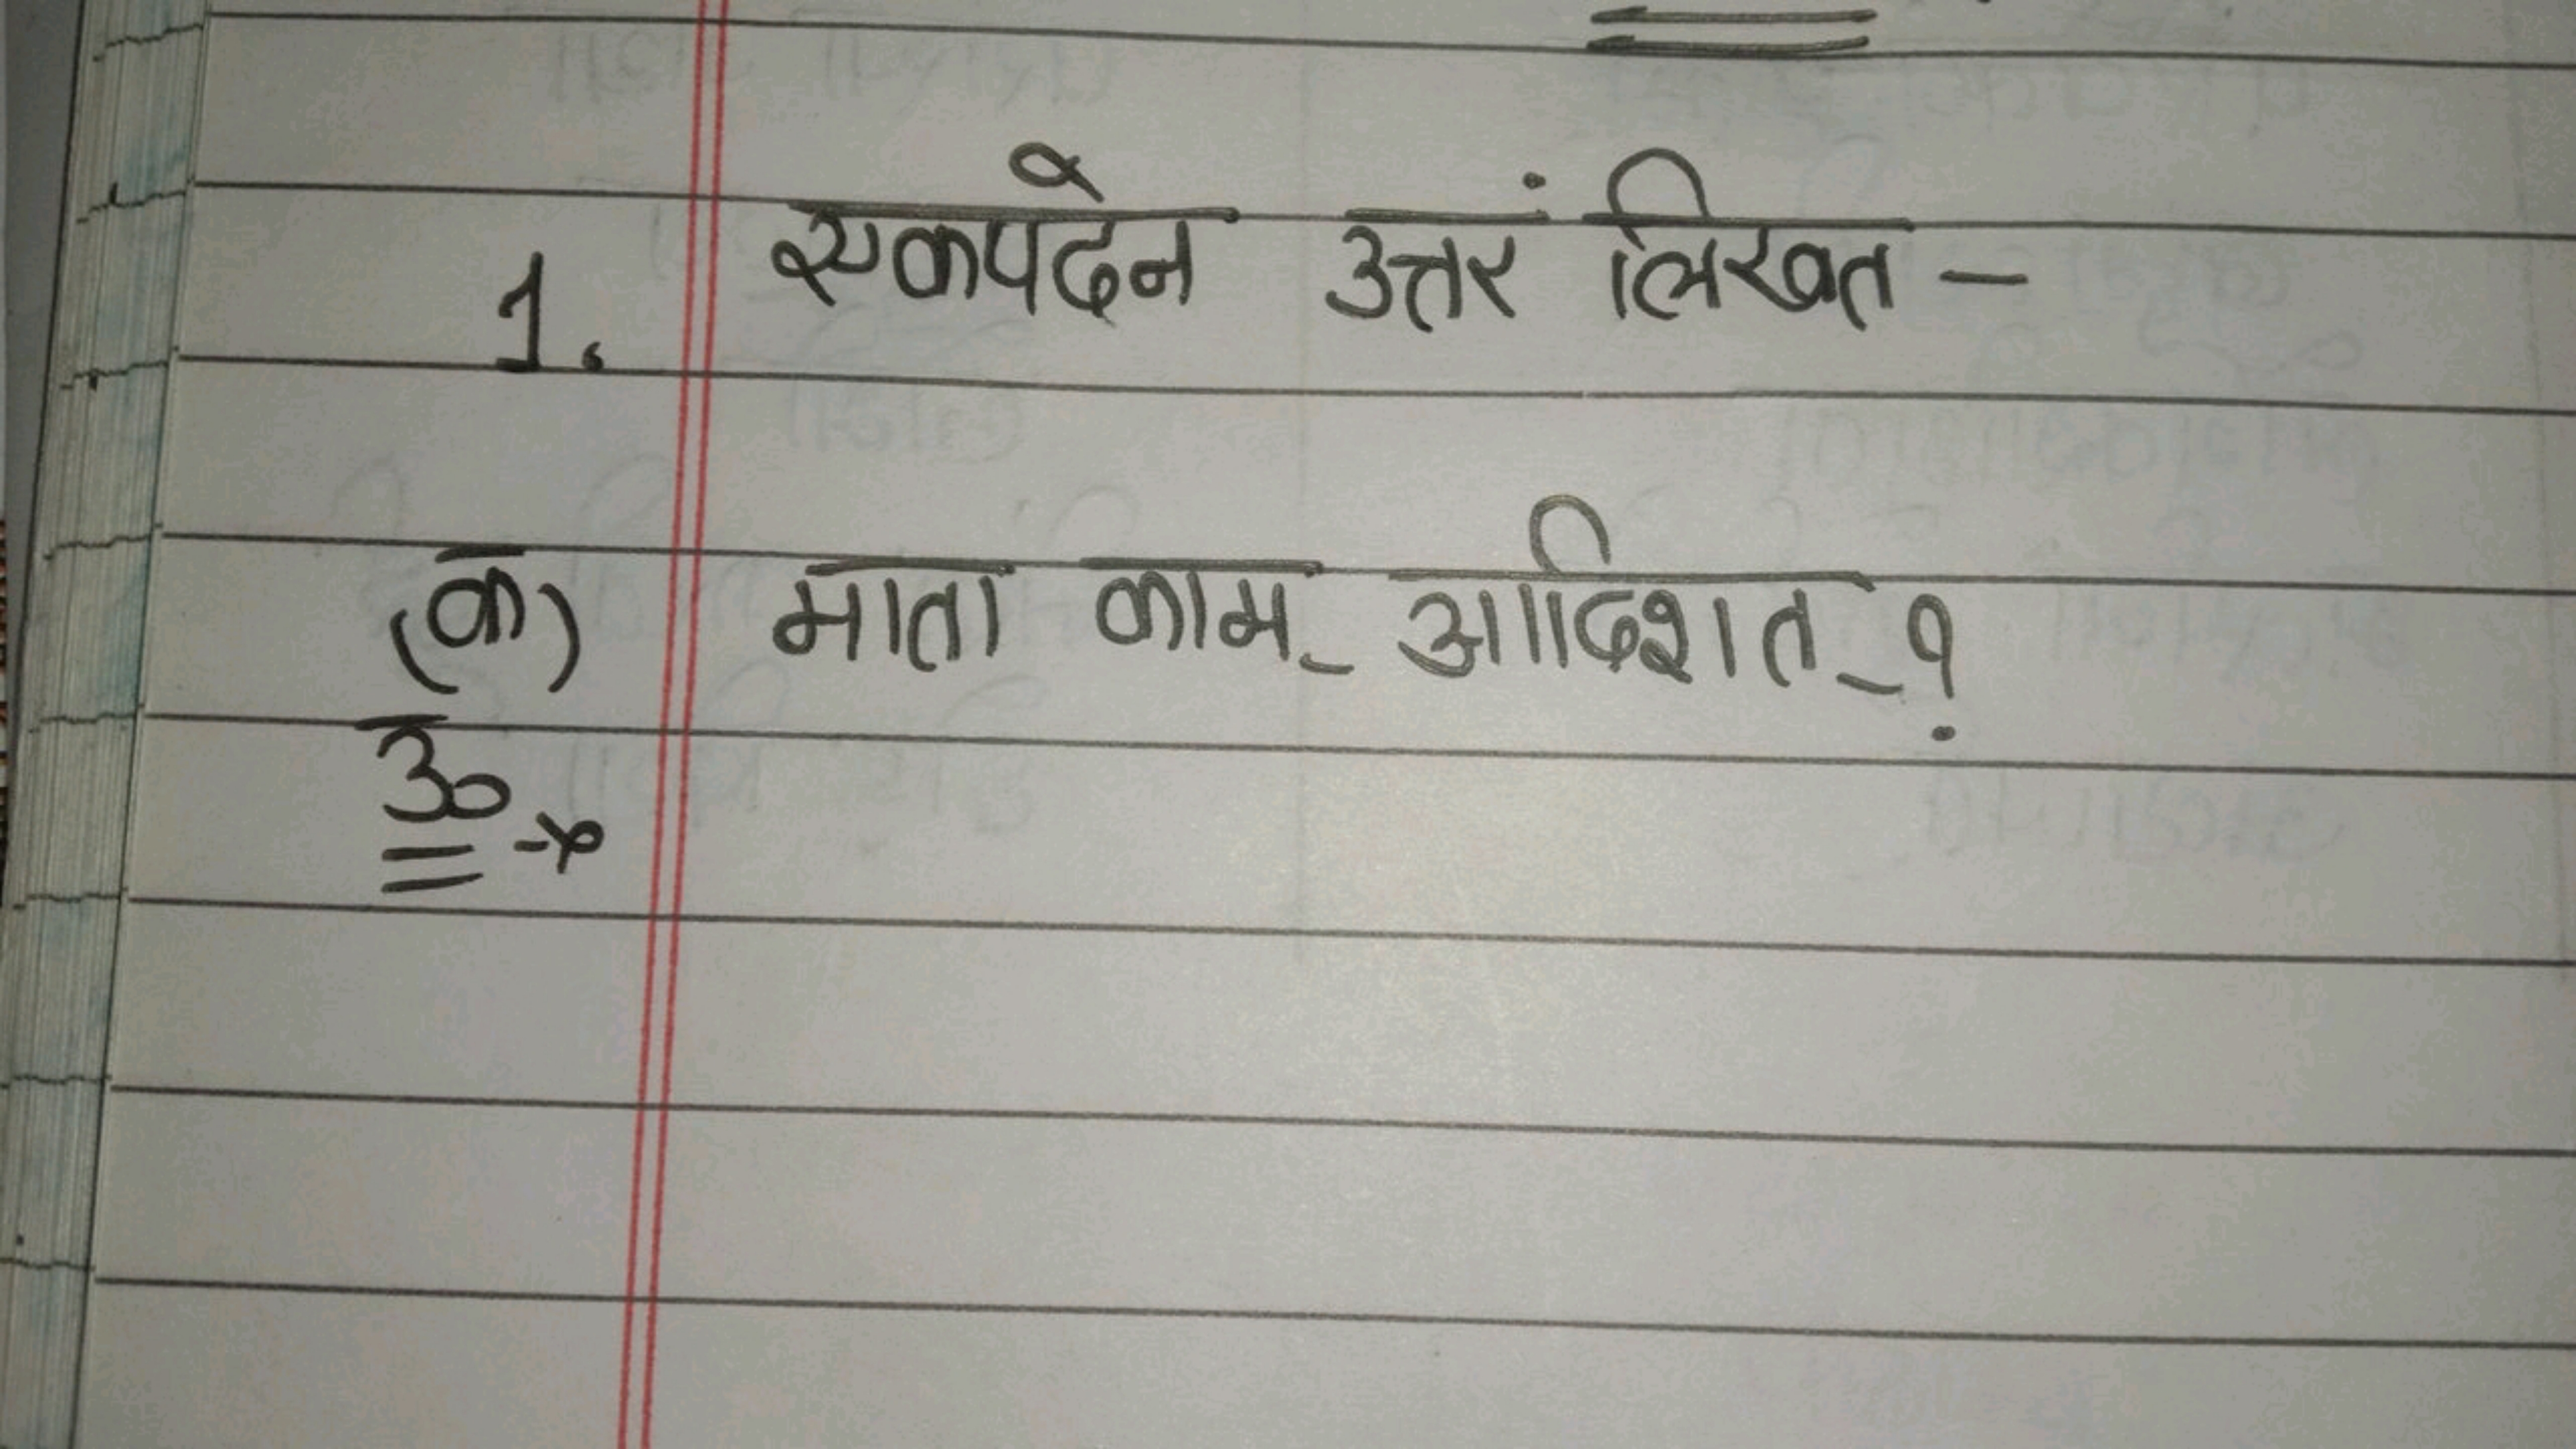 1. एकपदेन उत्तरं लिखत -
(क) माता काम् आदिशत् ?
उ०→